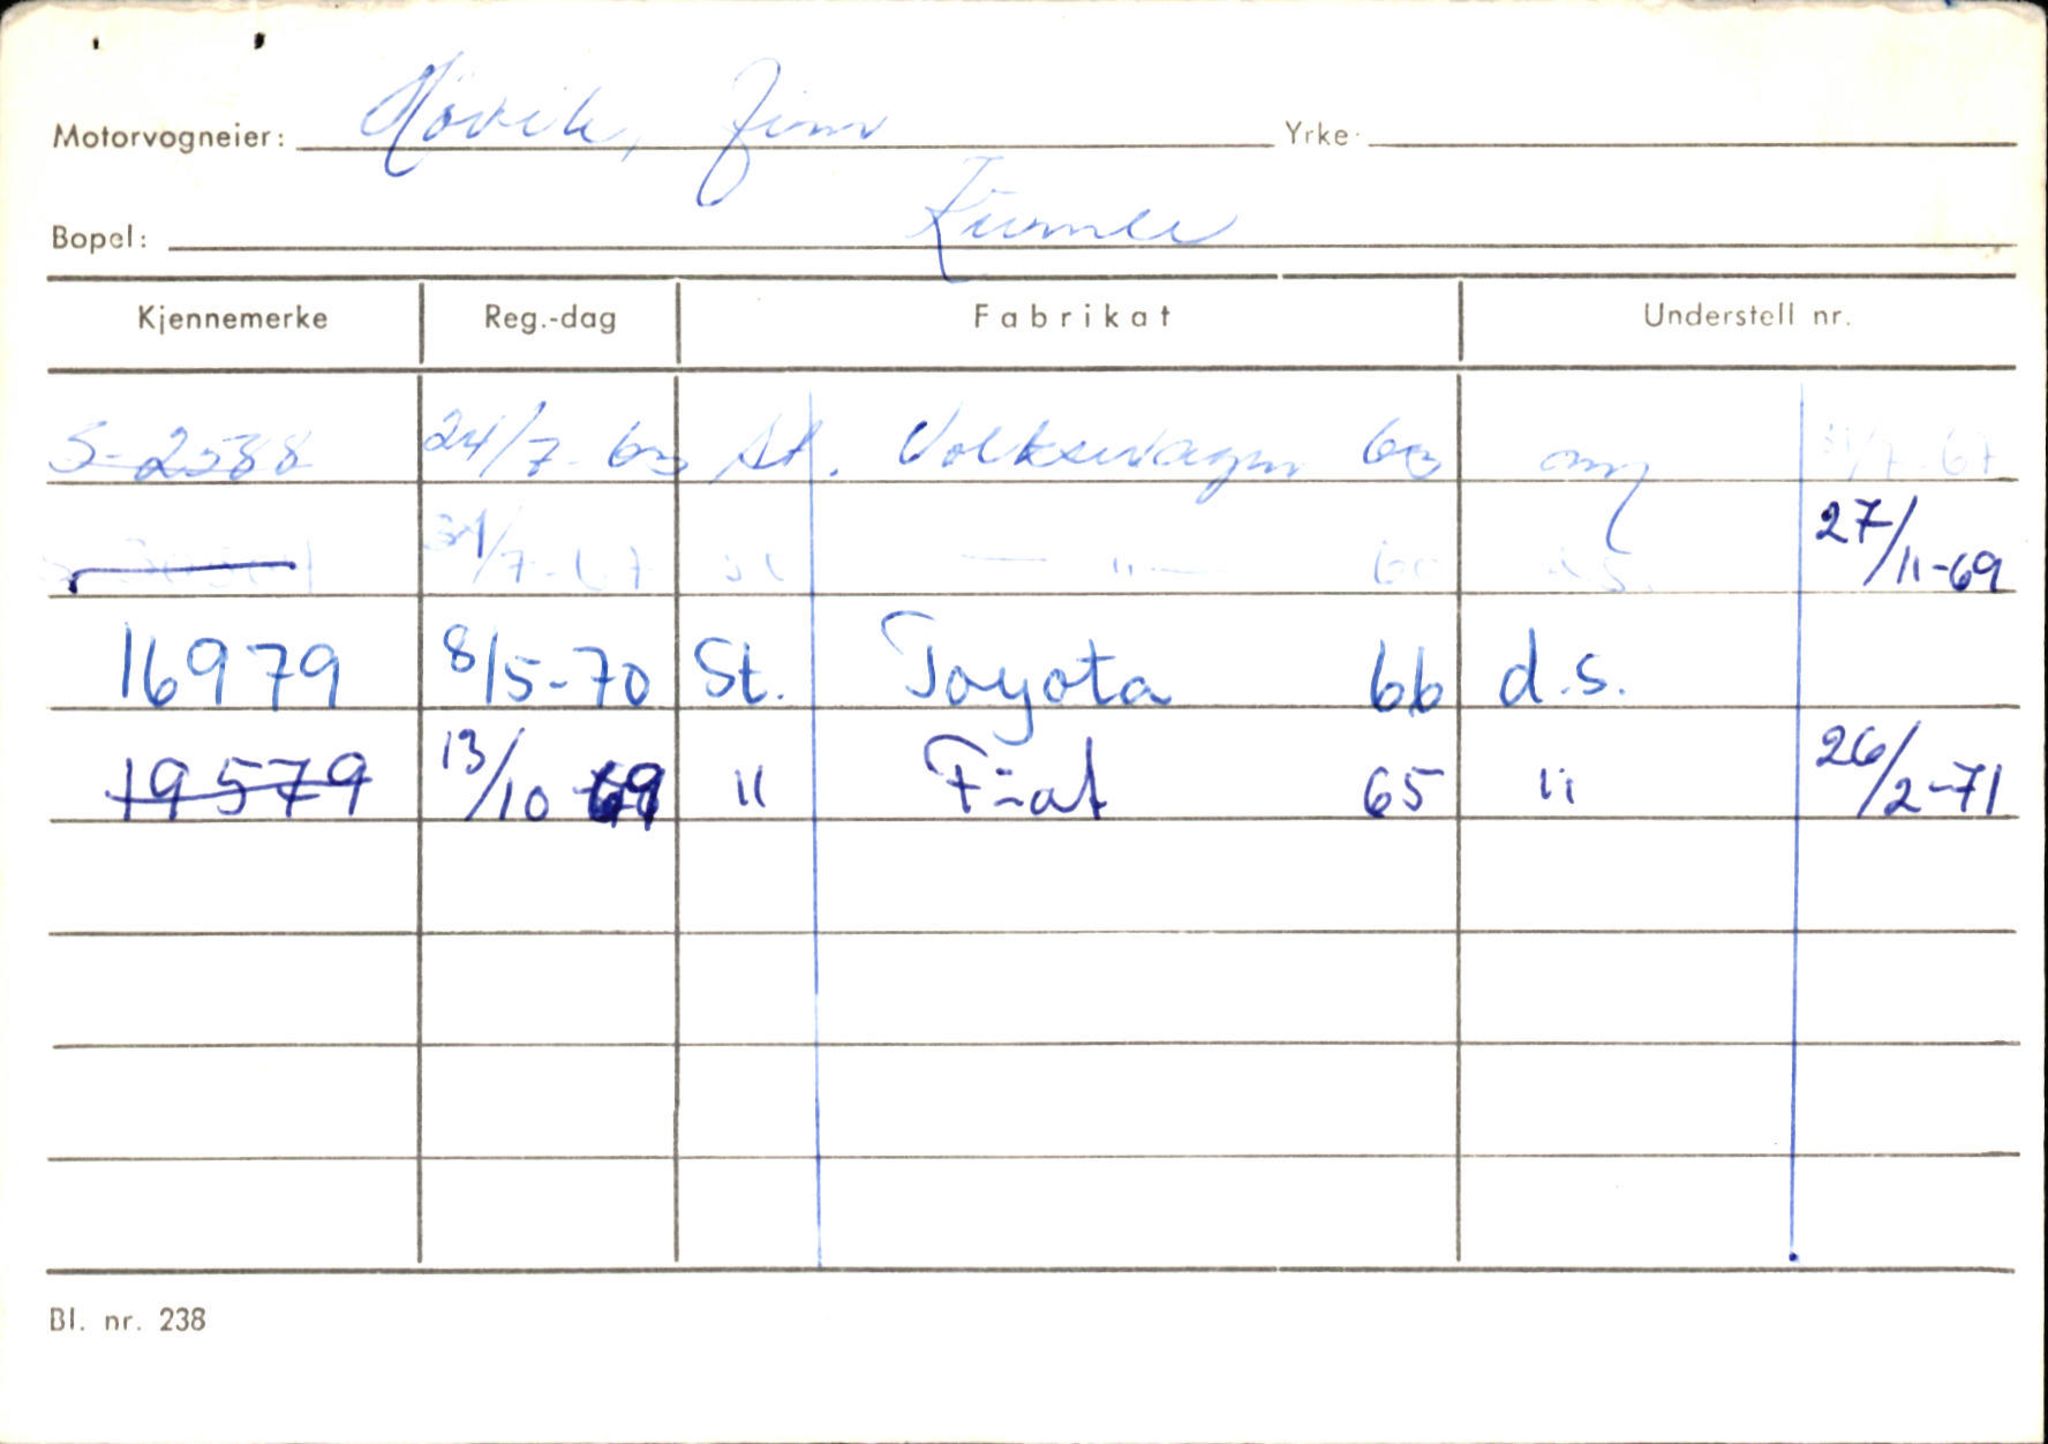 Motorvogneier: Hövik, Finn Yrke:
Bopel:
Kjennemerke Reg.-dag Fabrikat Understell nr.
S-2588 24/7-63 St. Volkswagen 60 ny 31/7-67
31/7-67 St — " — 60 d.s. 27/11-69
16979 8/5-70 St. Toyota 66 d.s.
19579 13/10-69 " Fiat 65 " 26/2-71
Bl. nr. 238